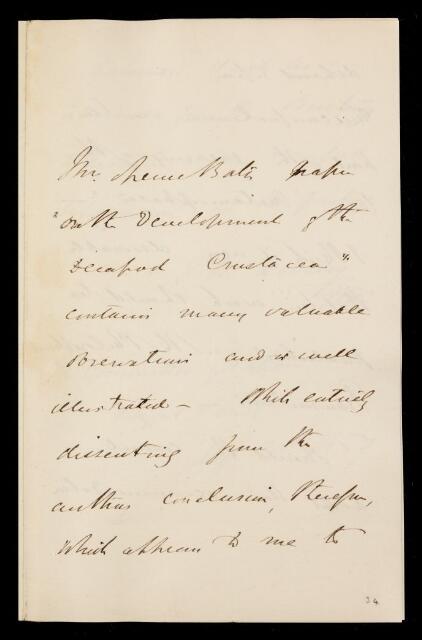 Mr. Spence Bate's paper
"on the Development of the
Decapod Crustacea"
contains many valuable
observations and is well
illustrated – While entirely
dissenting from the
authors conclusion, therefore,
which appears to me to
34